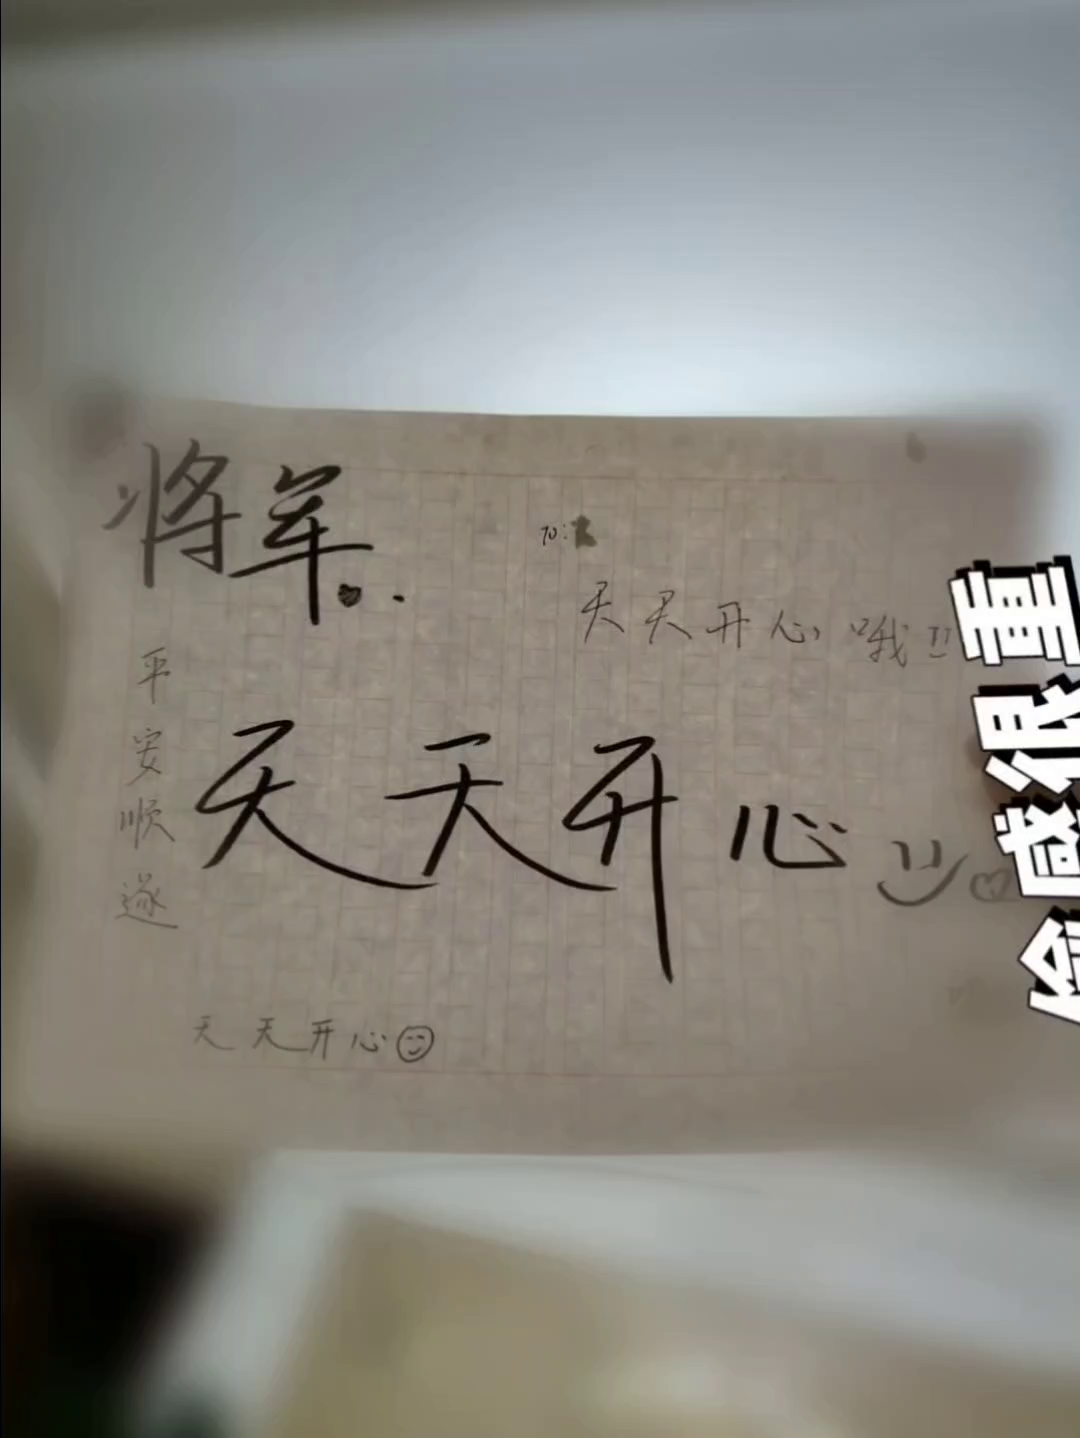 将军..
to:
天天开心哦!!
平安顺遂
天天开心
天天开心
感很重